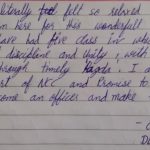 literally felt so relived
here for this wonderfull
have had five class in
discipline and Unity, with
through timely I a
of NCC and Promise to
ome an officer and make